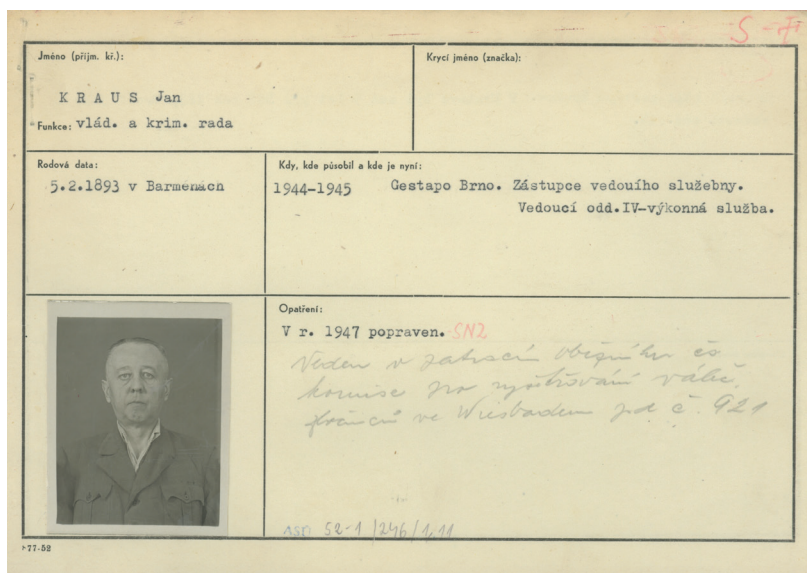 S
Jméno (příjm. kř.):
K R A U S Jan
Funkce: vlád. a krim. rada
Krycí jméno (značka):
Rodová data:
5.2.1893 v Barmenách
Kdy, kde působil a kde je nyní:
1944-1945 Gestapo Brno. Zástupce vedouího služebny.
Vedoucí odd.IV-výkonná služba.
Opatření:
V r. 1947 popraven. SNZ
Veden v zatracím oběžníku čs
komise pro vyšetřování váleč.
zločinců ve Wiesbadenu pod č. 921
52-1/246/
77-52